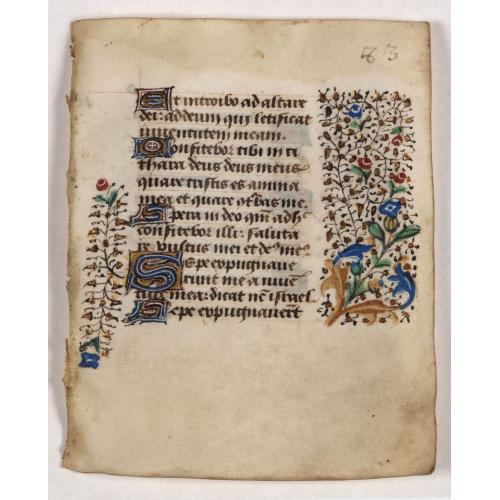 83
Et introibo ad altare
dei: ad deum qui letificat
iuventutem meam.
Confitebor tibi in ci
thara deus deus meus
quare tristis es anima
mea et quare gtbas me.
Spera in deo qm adh
confitebor illi: saluta
re vultus mei et de me
Sepe expugnave
runt me a iuve
tute mea: dicat nc israel
Sepe expugnavert